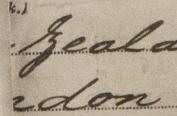 k.)
Zeala
ndon